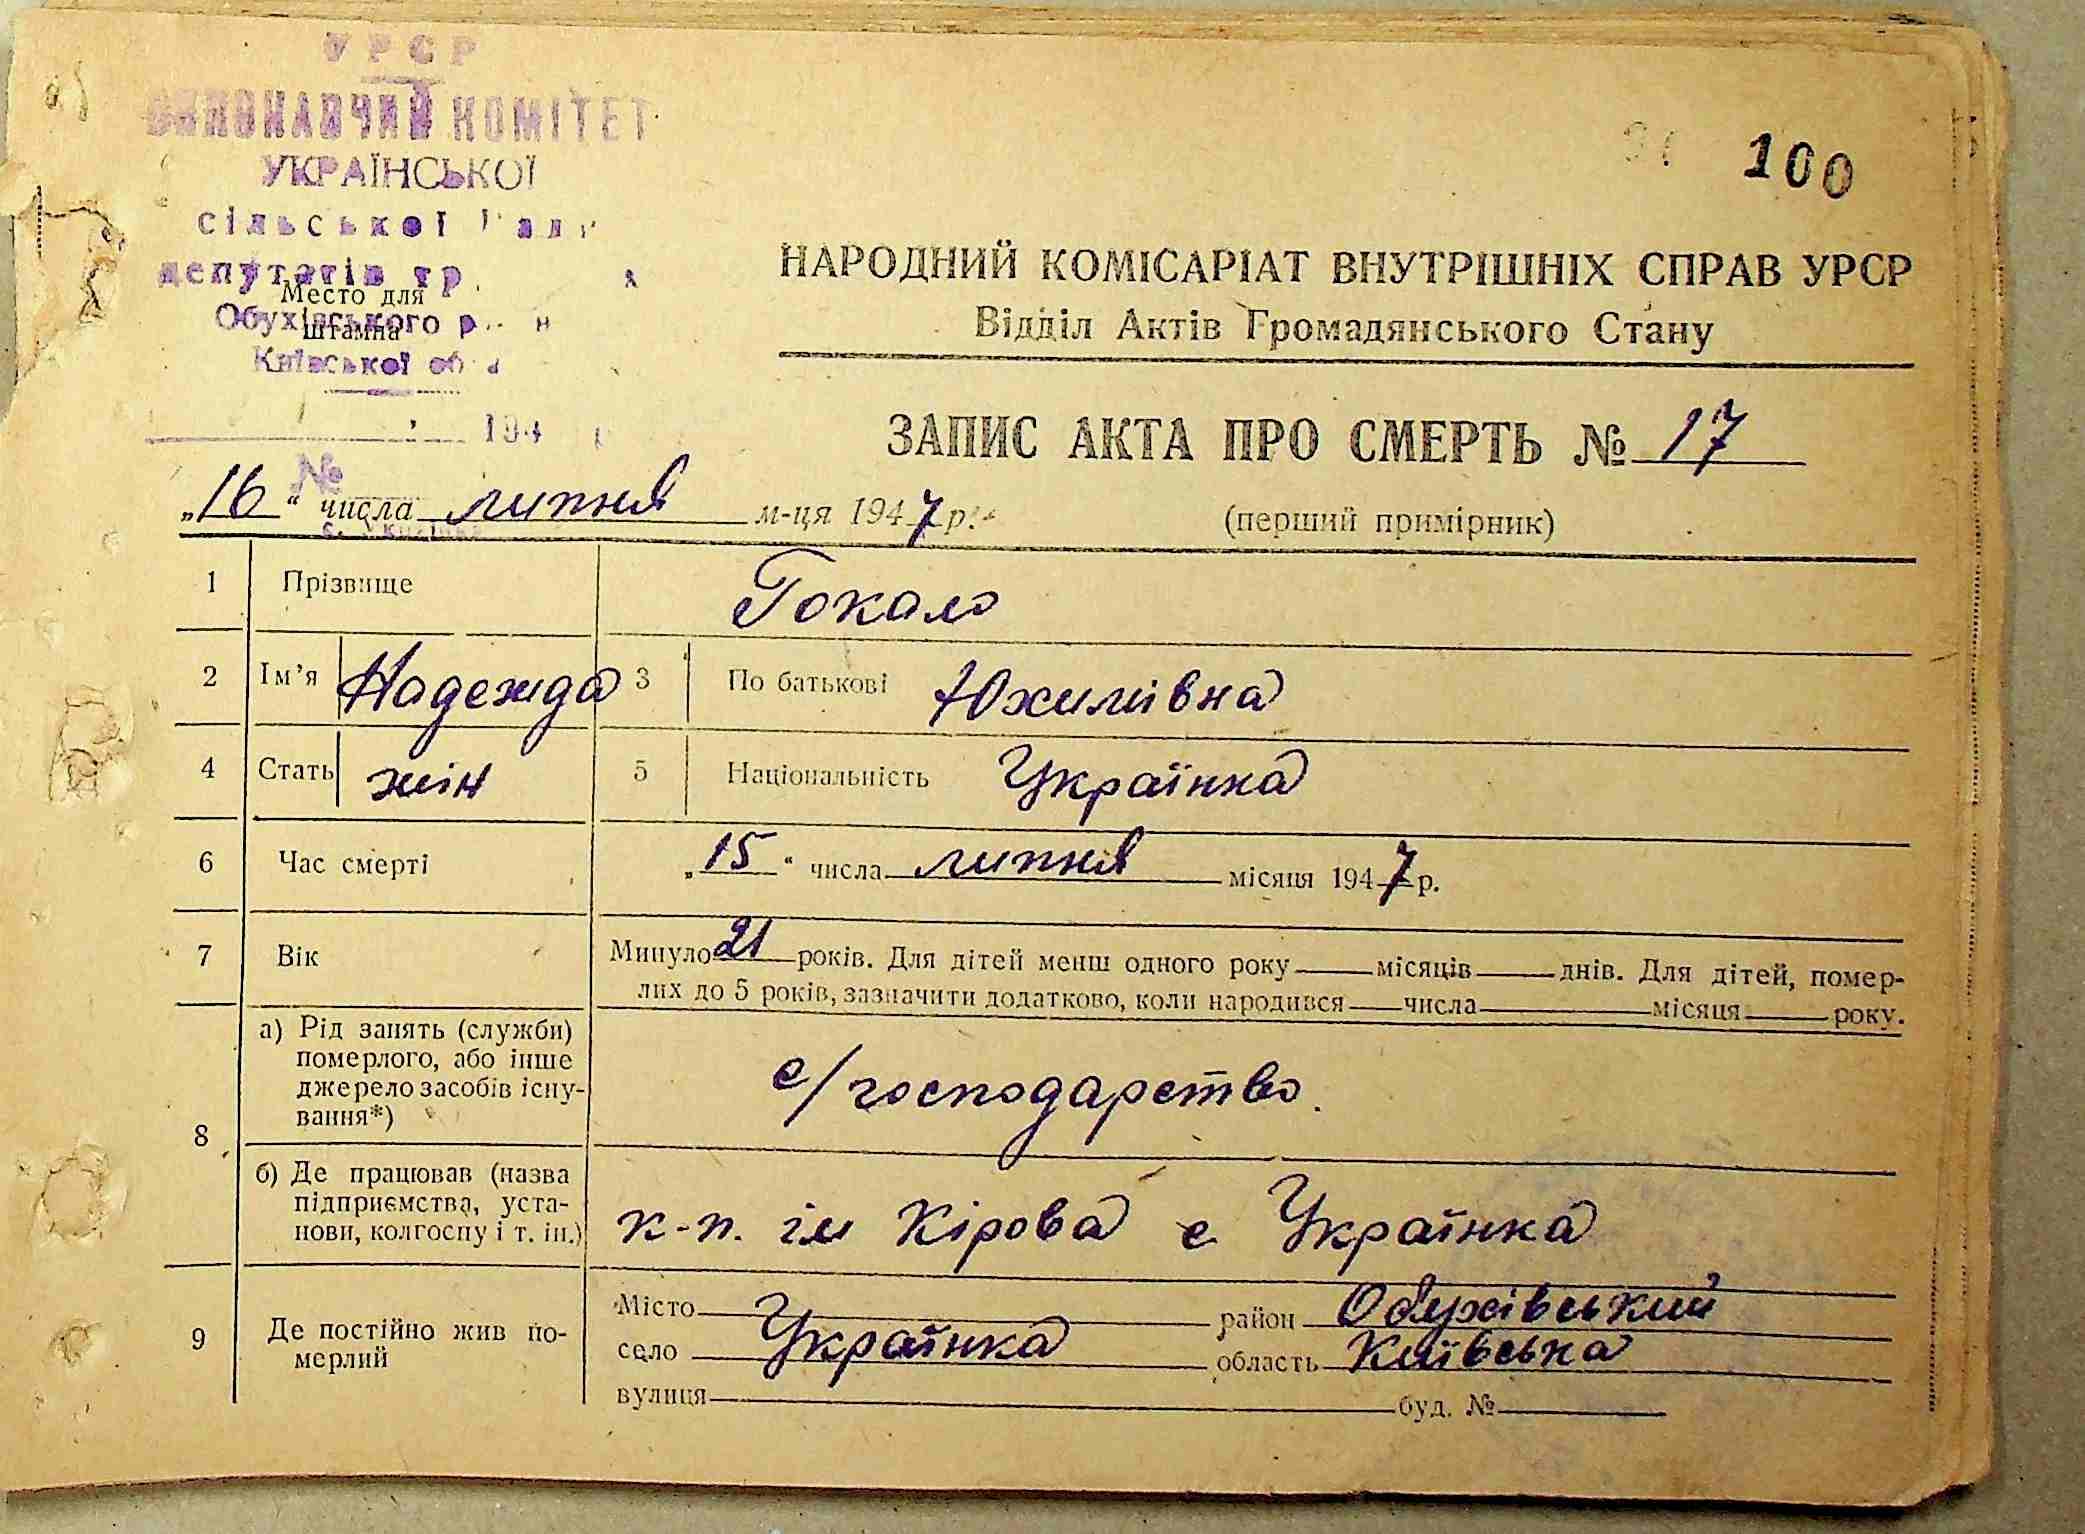 УРСР
ВИКОНАВЧИЙ КОМІТЕТ
УКРАЇНСЬКОЇ
сільської Ради
депутатів
Место для
штампа
Обухівського
Київської
194
№
100
НАРОДНИЙ КОМІСАРІАТ ВНУТРІШНІХ СПРАВ УРСР
Відділ Актів Громадянського Стану
ЗАПИС АКТА ПРО СМЕРТЬ № 17
„16“ числа липня м-ця 1947 р.
(перший примірник)
1 Прізвище Гокало
2 Ім’я Надежда 3 По батькові Юхимівна
4 Стать жін 5 Національність Українка
6 Час смерті „15“ числа липня місяця 1947 р.
7 Вік Минуло 21 років. Для дітей менш одного року місяців днів. Для дітей, помер-
лих до 5 років, зазначити додатково, коли народився числа місяця року.
8 а) Рід занять (служби)
померлого, або інше
джерело засобів існу-
вання*)
с/господарство.
б) Де працював (назва
підприємства, уста-
нови, колгоспу і т. ін.)
к-п. ім Кірова с Українка
9 Де постійно жив по-
мерлий
Місто район Обухівський
село Українка область Київська
вулиця буд. №